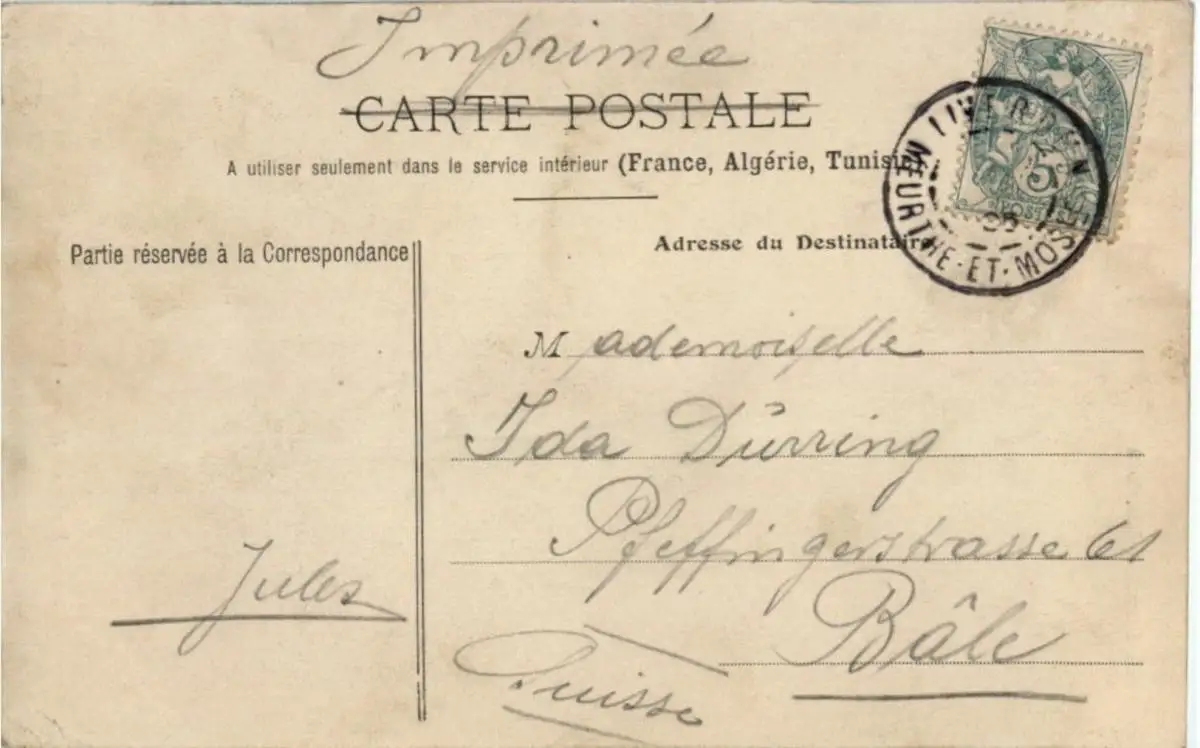 Imprimée
CARTE POSTALE
A utiliser seulement dans le service intérieur (France, Algérie, Tunisie)
Partie réservée à la Correspondance
Adresse du Destinataire
LIVERDUN
MEURTHE-ET-MOSELLE
5
POSTES
Mademoiselle
Ida Dürring
Pfeffingerstrasse 61
Bâle
Suisse
Jules